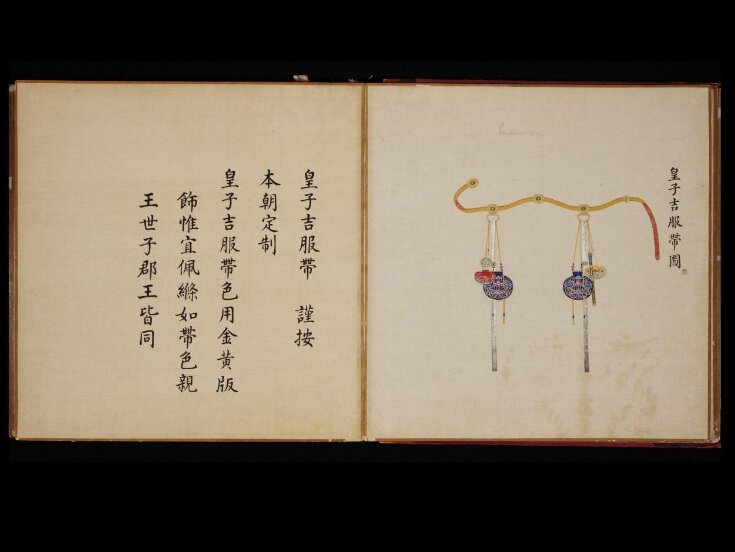 皇子吉服帶圖
皇子吉服帶　謹按
本朝定制
皇子吉服帶色用金黄版
飾惟宜佩絛如帶色親
王世子郡王皆同